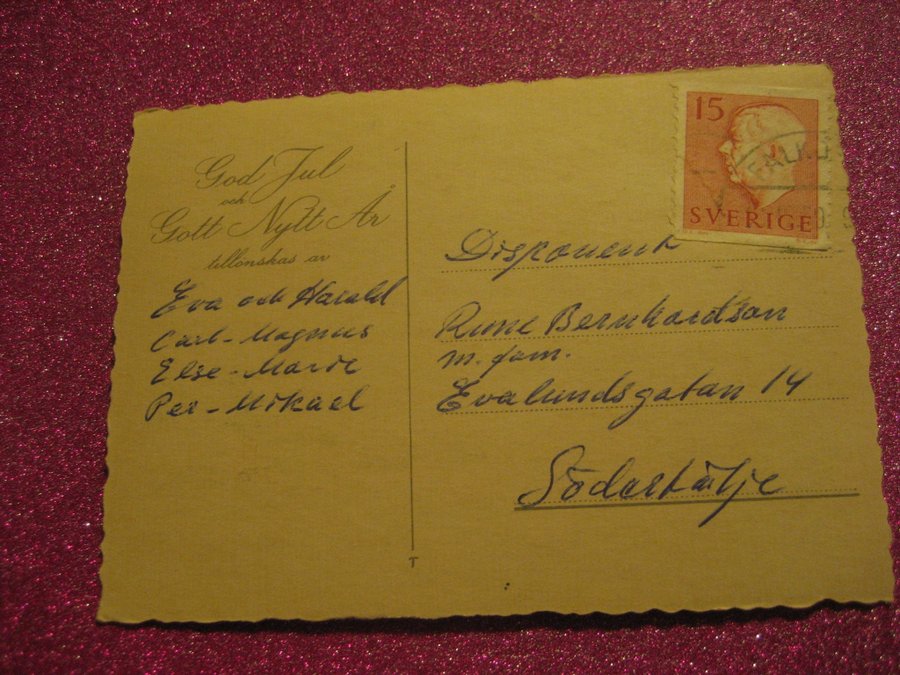 God Jul
och
Gott Nytt År
tillönskas av
Eva och Harald
Carl-Magnus
Else-Marie
Per-Mikael
15
SVERIGE
Disponent
Rune Bernhardtson
m. fam.
Evalundsgatan 14
Södertälje
T